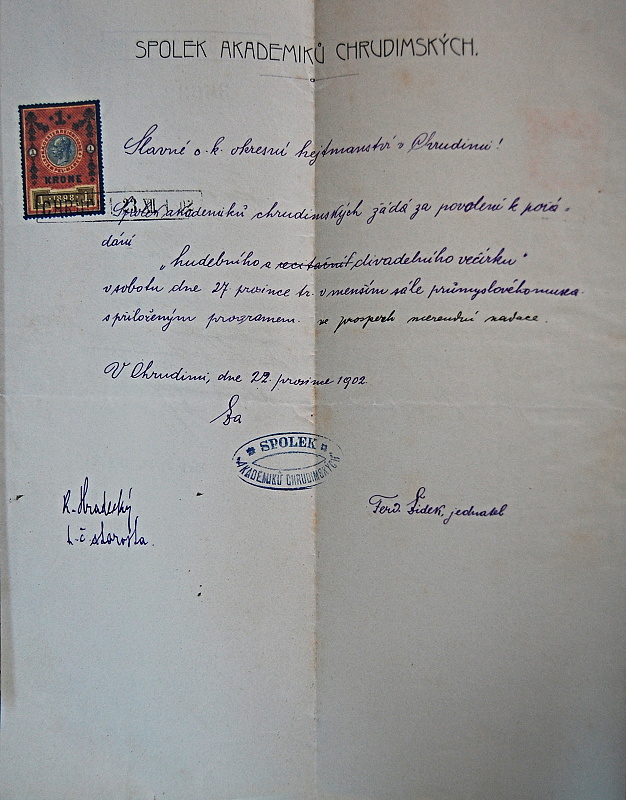 SPOLEK AKADEMIKŮ CHRUDIMSKÝCH.
1
KRONE
1898
Slavné c. k. okresní hejtmanství v Chrudimi!
Spolek akademiků chrudimských žádá za povolení k pořá-
dání
„hudebního a recitačníť divadelního večírku"
v sobotu dne 27 prosince t.r. v menším sále průmyslového musea
s přiloženým programem. ve prospěch nadace.
V Chrudimi, dne 22. prosince 1902.
Za
SPOLEK
AKADEMIKŮ CHRUDIMSKÝCH
K. Hradecký
t. č. starosta.
Ferd. Šidek, jednatel